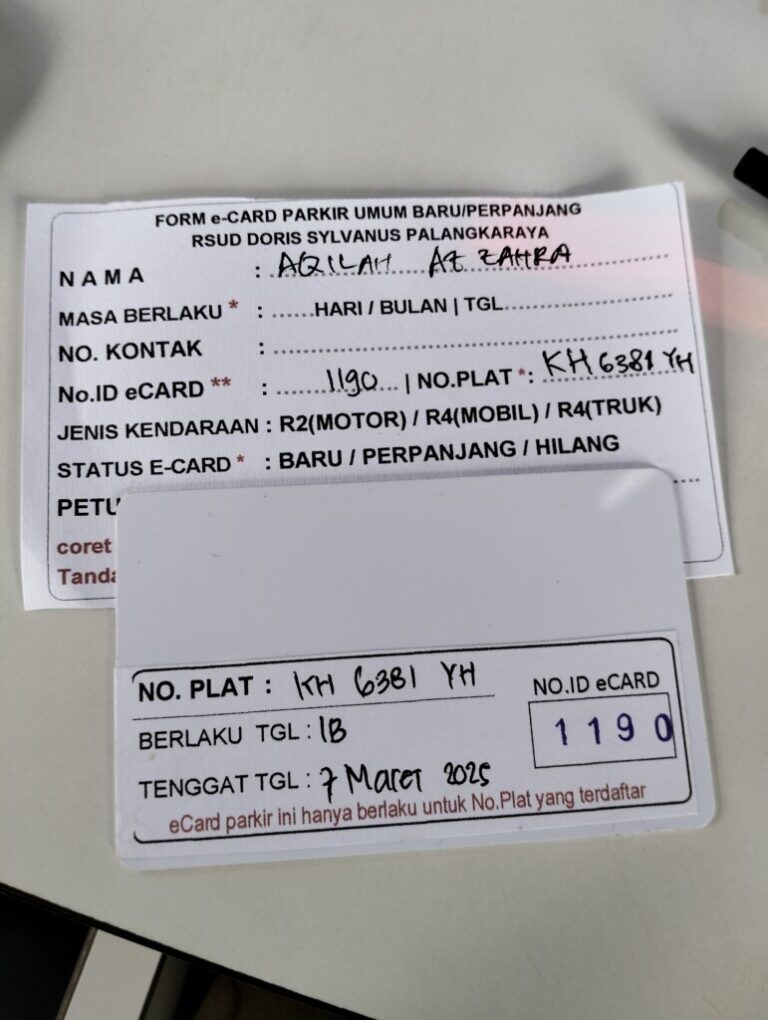 FORM e-CARD PARKIR UMUM BARU/PERPANJANG
RSUD DORIS SYLVANUS PALANGKARAYA
NAMA : AQILAH AZ ZAHRA
MASA BERLAKU * : ......HARI / BULAN | TGL..............................
NO. KONTAK : ..............................
No.ID eCARD ** : ........1190.... | NO.PLAT *: KH 6381 YH
JENIS KENDARAAN : R2(MOTOR) / R4(MOBIL) / R4(TRUK)
STATUS E-CARD * : BARU / PERPANJANG / HILANG
PETU
coret
Tanda
NO. PLAT : KH 6381 YH
NO.ID eCARD
1190
BERLAKU TGL : 1B
TENGGAT TGL : 7 Maret 2025
eCard parkir ini hanya berlaku untuk No.Plat yang terdaftar